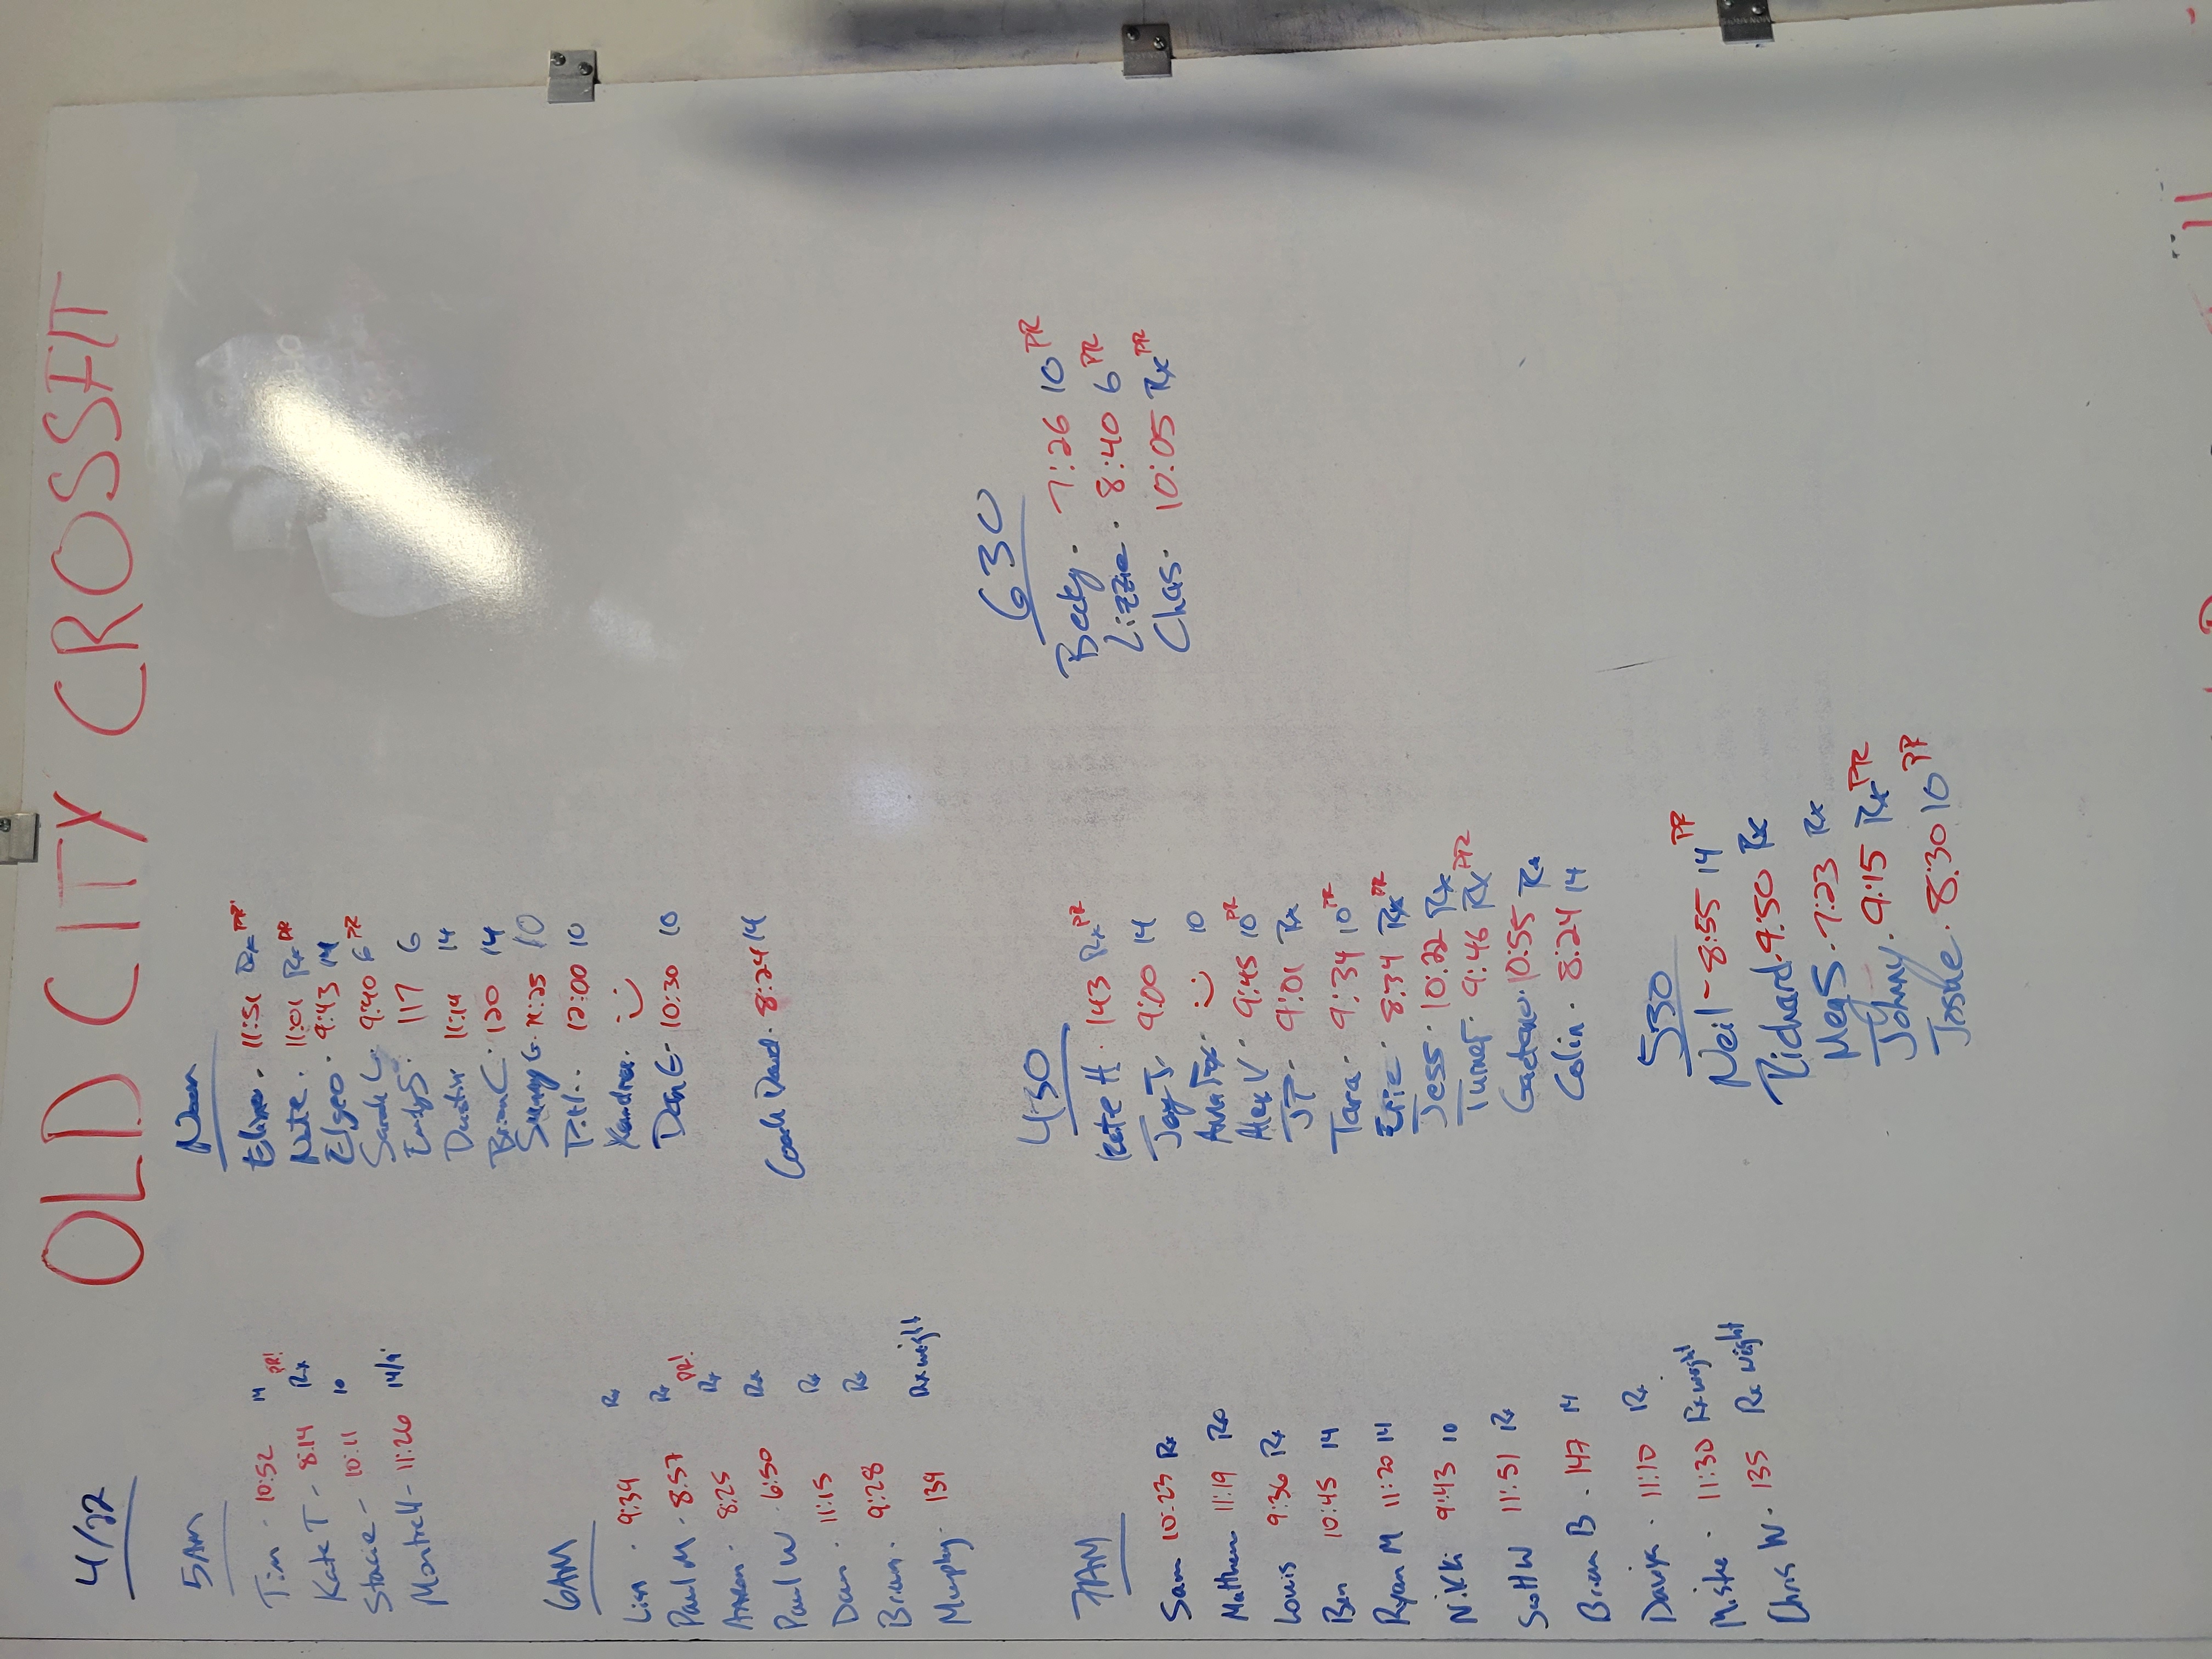 OLD CITY CROSSFIT
4/22
5AM
Tim - 10:52 14
Kate T - 8:14 Rx PR!
Stacie - 10:11 10
Montrell - 11:26 14/9
6AM
Lisa . 9:34 Rx
Paul M . 8:57 Rx
Aaron . 8:25 Rx PR!
Paul W . 6:50 Rx
Dan . 11:15 Rx
Brian . 9:28 Rx
Murphy . 134 Rx weight
7AM
Sam 10:23 Rx
Matthew 11:19 Rx
Louis 9:36 Rx
Ben 10:45 14
Ryan M 11:20 14
Nikki 9:43 10
Scott W 11:51 Rx
Brian B . 147 14
11:10 Rx
11:30 Rx weight
Chris W . 135 Rx weight
Noon
11:51 Rx PR
Nate . 11:01 Rx PR
Elgeo . 9:43 14
Sarah L . 9:40 6 PR
Emily S . 117 6
Dustin 11:14 14
Brian C . 120 14
10
12:00 10
Kendra . :)
Dan E . 10:30 10
Coach David . 8:24 14
430
Kate H . 143 Rx PR
Jay J . 9:00 14
Anna Fox . :) 10
Alex V . 9:45 10 PR
JT . 9:01 Rx
Tara . 9:34 10 PR
Eric . 8:34 Rx PR
Jess . 10:22 Rx
Turner . 9:46 Rx PR
Gaetano . 10:55 Rx
Colin . 8:24 14
530
Neil - 8:55 14 PR
Richard - 9:50 Rx
Meg S . 7:23 Rx
Johnny . 9:15 Rx PR
Joshe . 8:30 10 PR
630
Becky . 7:26 10 PR
Lizzie . 8:40 6 PR
Chas . 10:05 Rx PR